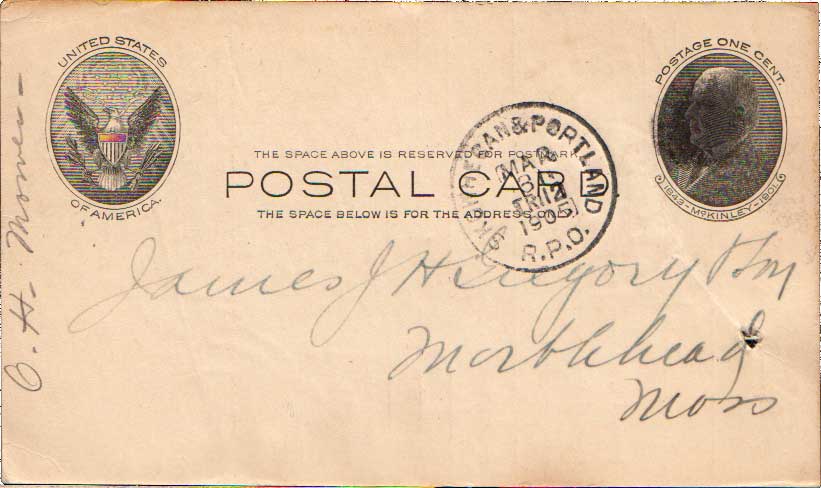 UNITED STATES
OF AMERICA.
POSTAGE ONE CENT.
1843-McKINLEY-1901.
THE SPACE ABOVE IS RESERVED FOR POSTMARK.
POSTAL CARD
THE SPACE BELOW IS FOR THE ADDRESS ONLY.
SKOWHEGAN & PORTLAND
MAR
1905
R.P.O.
James J H Gregory
Marblehead
Mass
O. H.